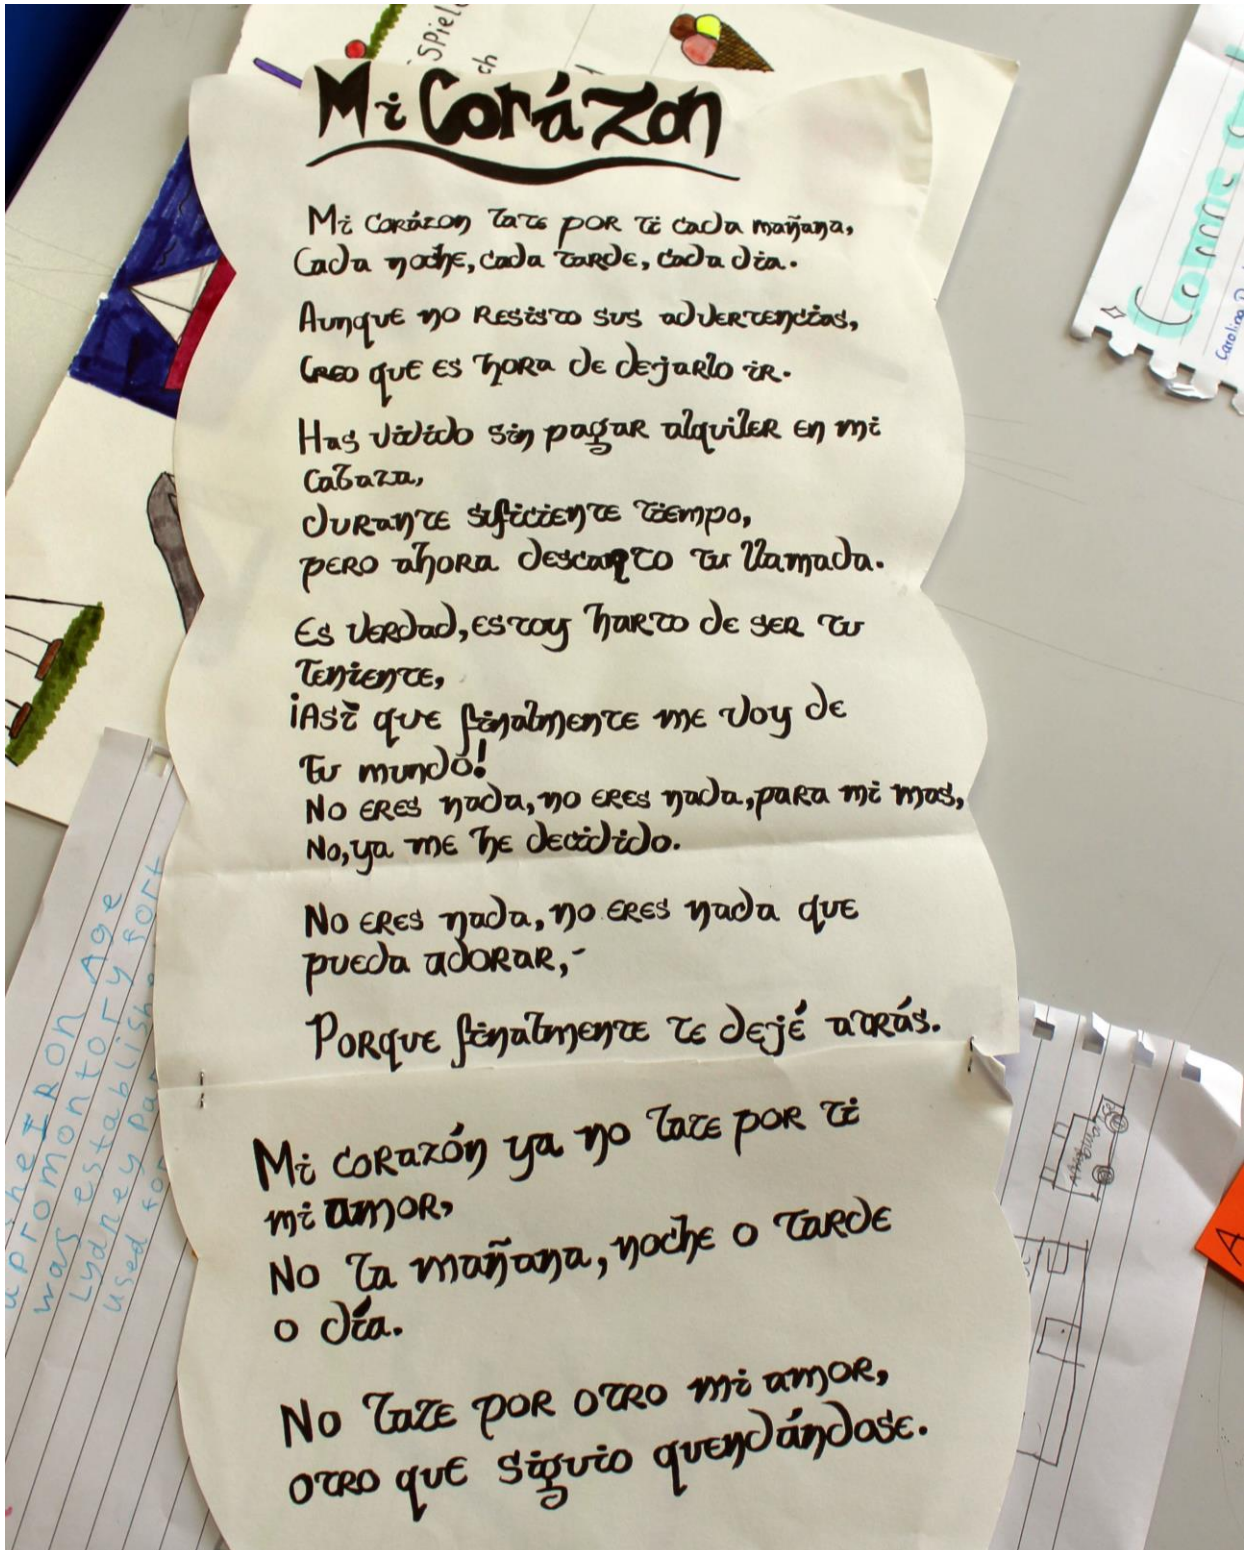 Spiel
ch
Mi Corázon
Mi Corázon late por ti cada mañana,
Cada noche, cada tarde, cada dia.
Aunque no Resisto sus advertencias,
Creo que es hora de dejarlo ir.
Has vivido sin pagar alquiler en mi
cabaza,
durante suficiente tiempo,
pero ahora descarto tu llamada.
Es verdad, estoy harto de ser tu
teniente,
¡Así que finalmente me voy de
tu mundo!
No eres nada, no eres nada, para mi mas,
No, ya me he decidido.
No eres nada, no eres nada que
pueda adorar,-
Porque finalmente te dejé atrás.
Mi corazón ya no late por ti
mi amor,
No la mañana, noche o tarde
o día.
No late por otro mi amor,
otro que siguio quendándose.
Come
Carolina D
the IRON Age
a promontory fort
was establish
Lydney Par
used for
A